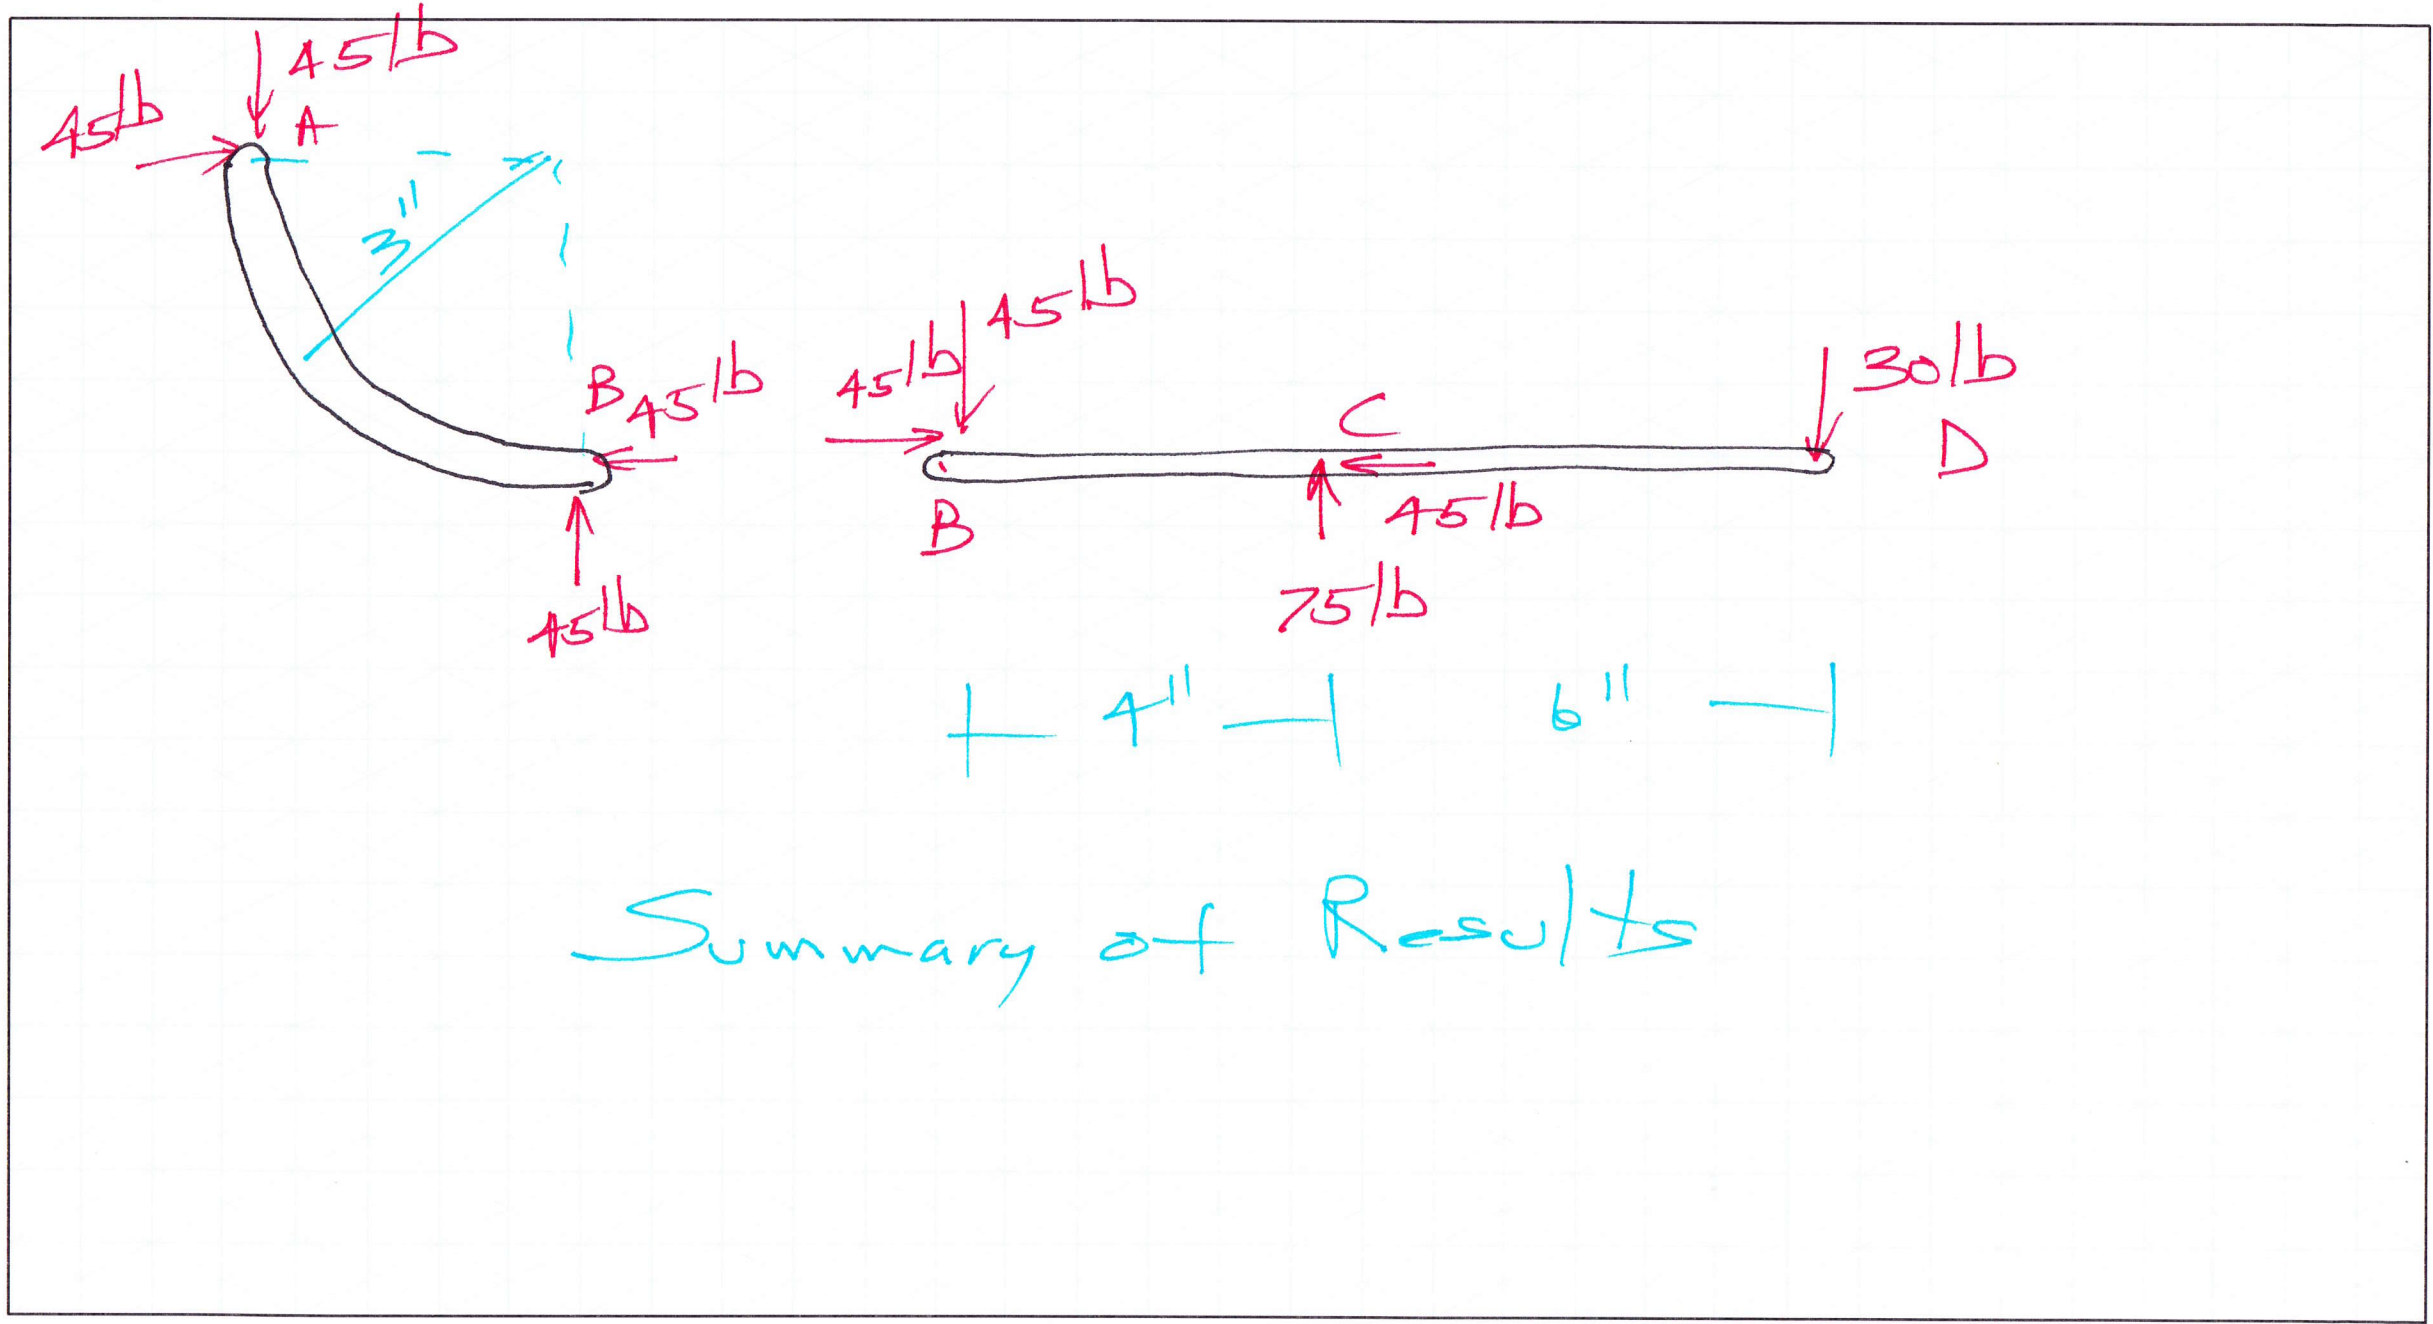 45lb
45lb
A
3"
B 45lb
45lb
45lb
45lb
B
C
45lb
75lb
30lb
D
4"
6"
Summary of Results